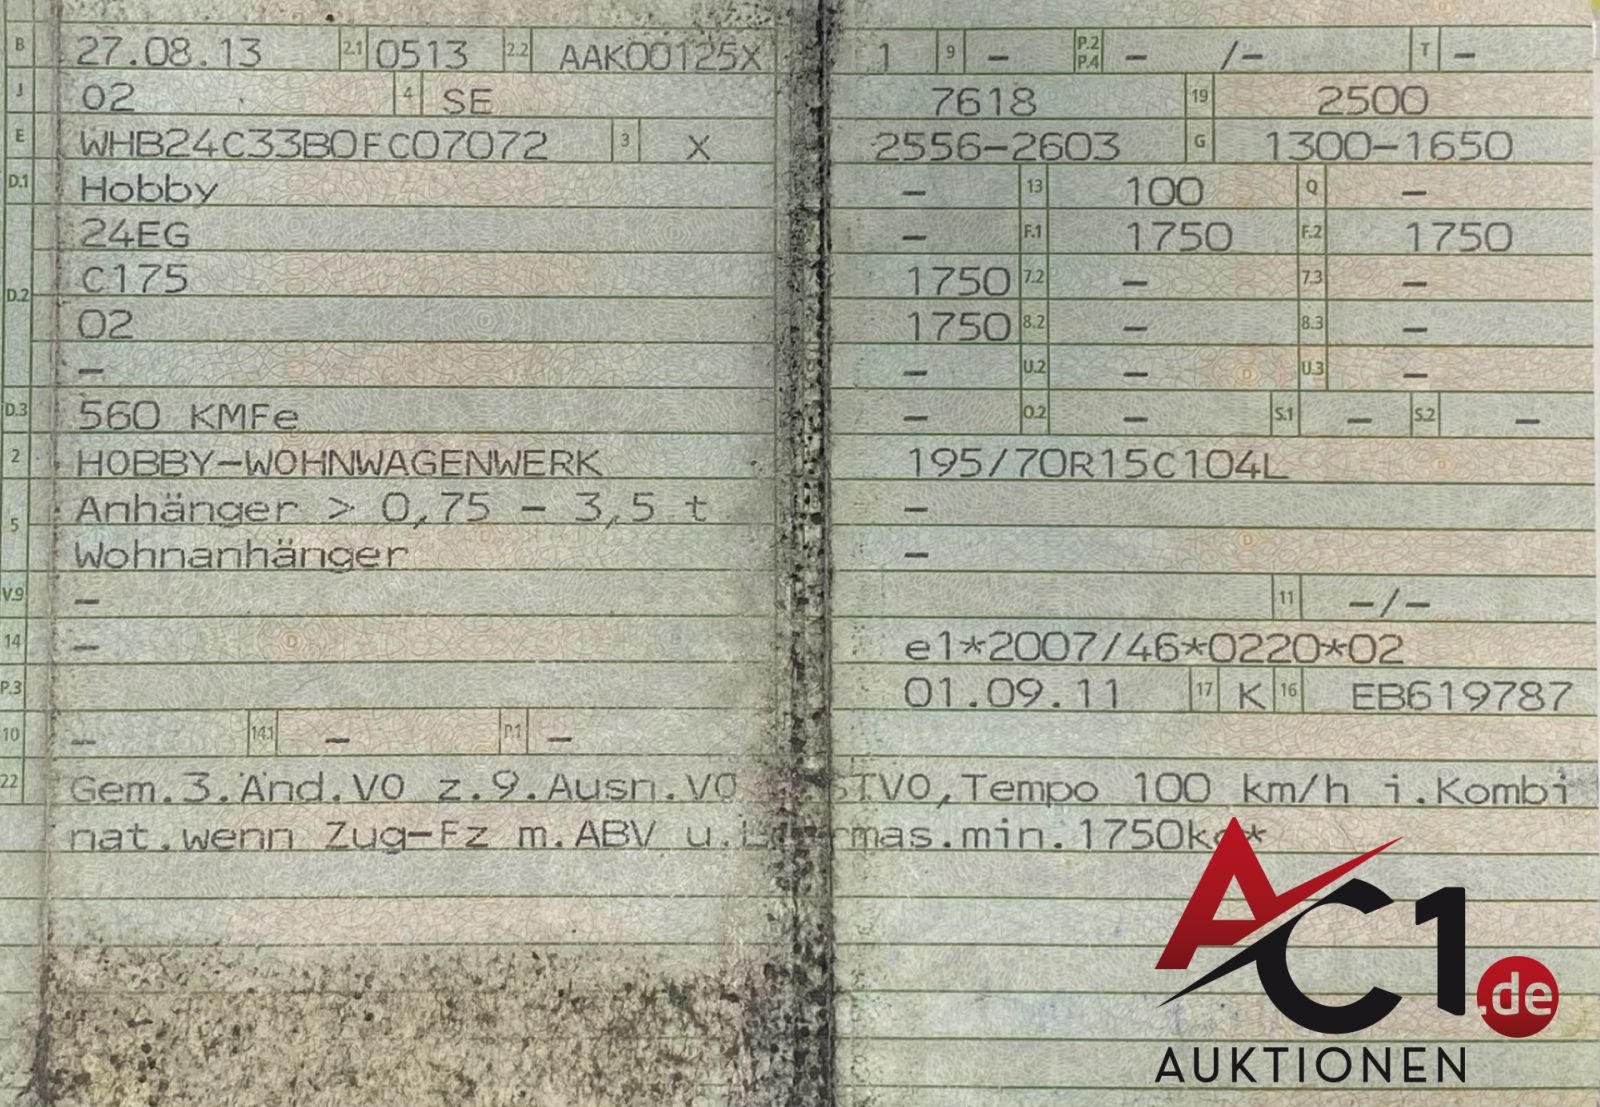 B 27.08.13 2.1 0513 2.2 AAK00125X 1 9 – P.2 P.4 – /– T –
J 02 4 SE 7618 19 2500
E WHB24C33B0FC07072 3 X 2556–2603 G 1300–1650
D.1 Hobby – 13 100 Q –
24EG – F.1 1750 F.2 1750
D.2 C175 1750 7.2 – 7.3 –
02 1750 8.2 – 8.3 –
– – U.2 – U.3 –
D.3 560 KMFe – O.2 – S.1 – S.2 –
2 HOBBY–WOHNWAGENWERK 195/70R15C104L
5 Anhänger > 0,75 – 3,5 t –
Wohnanhänger –
V.9 – 11 –/–
14 – e1*2007/46*0220*02
P.3 01.09.11 17 K 16 EB619787
10 – 14.1 – P.1 –
22 Gem.3.Änd.VO z.9.Ausn.VO STVO,Tempo 100 km/h i.Kombi
nat.wenn Zug–Fz m.ABV u. mas.min.1750kg*
AC1.de
AUKTIONEN